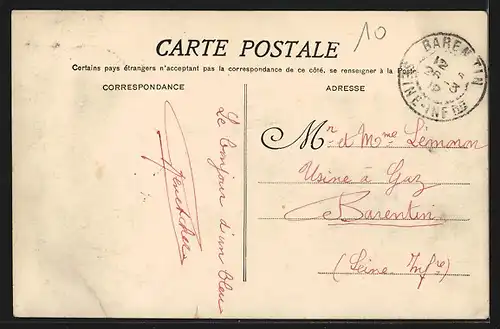 10
CARTE POSTALE
Certains pays étrangers n'acceptant pas la correspondance de ce côté, se renseigner à la Poste
CORRESPONDANCE
ADRESSE
BARENTIN
12
SEINE-INFRE
Le bonjour d'un bleu
Mr et Mme Lémonon
Usine à Gaz
Barentin
(Seine Infre)